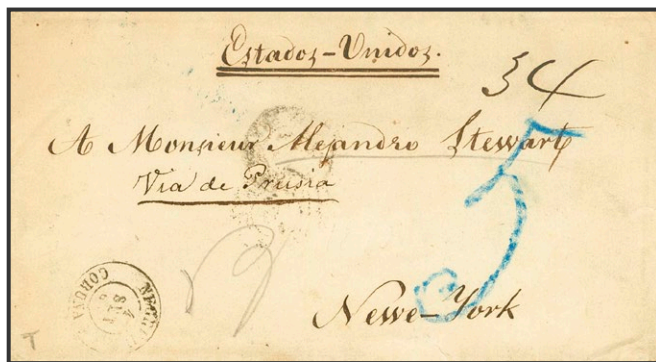 Estados-Unidos.
34
A Monsieur Alejandro Stewart
Via de Prusia
5
Newe-York
CORUÑA
4
SET